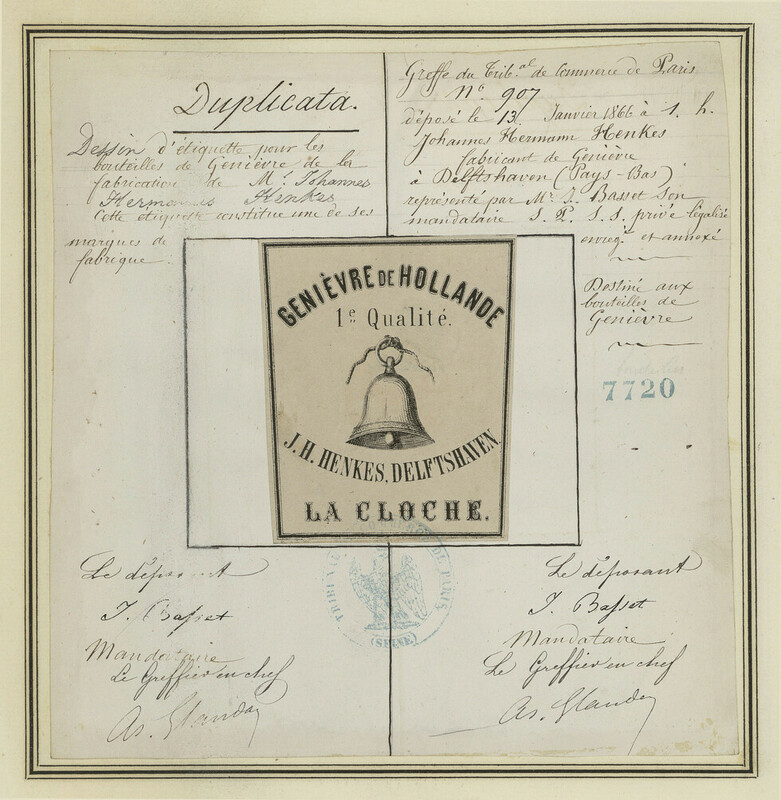 Duplicata.
Dessin d'étiquette pour les
bouteilles de Genièvre de la
fabrication de Mr. Johannes
Hermannus Henkes
Cette étiquette constitue une de ses
marques de
fabrique.
Greffe du Tribal de Commerce de Paris
No. 907
déposé le 13 Janvier 1866 à 1. h.
Johannes Hermann Henkes
fabricant de Genièvre
à Delftshaven (Pays-Bas)
représenté par Mr. J. Basset son
mandataire S. P. S. S. privé légalisé
enregt. et annexé
Destiné aux
bouteilles de
Genièvre
7720
GENIÈVRE DE HOLLANDE
1e Qualité.
J. H. HENKES, DELFTSHAVEN.
LA CLOCHE.
TRIBUNAL DE PARIS
(SEINE)
Le déposant
J. Basset
Mandataire
Le Greffier en chef
Le déposant
J. Basset
Mandataire
Le Greffier en chef